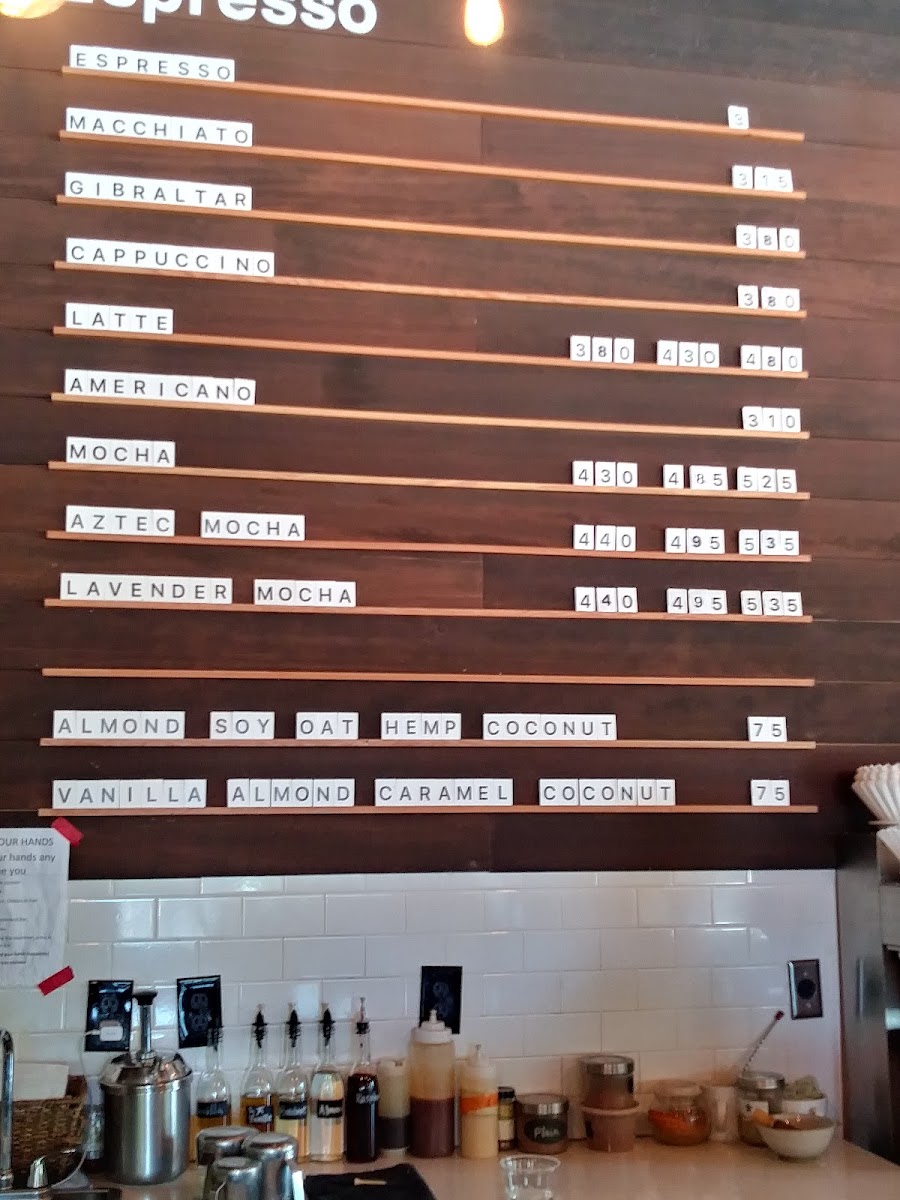 Espresso
ESPRESSO 3
MACCHIATO 315
GIBRALTAR 380
CAPPUCCINO 380
LATTE 380 430 480
AMERICANO 310
MOCHA 430 485 525
AZTEC MOCHA 440 495 535
LAVENDER MOCHA 440 495 535
ALMOND SOY OAT HEMP COCONUT 75
VANILLA ALMOND CARAMEL COCONUT 75
OUR HANDS
ur hands any
e you
Plain